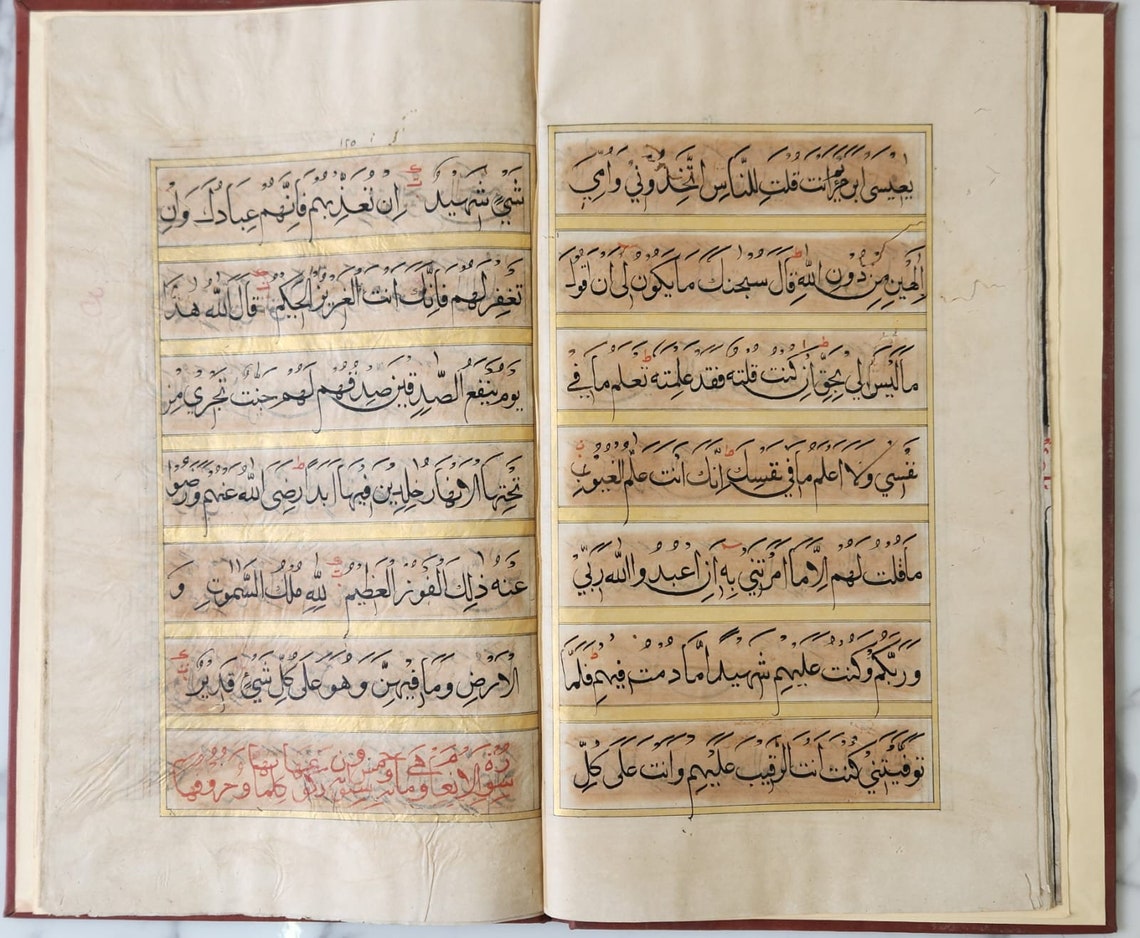 يعيسى ابن مريم ءانت قلت للناس اتخذوني وامي
الهين من دون الله قال سبحنك ما يكون لي ان اقول
ما ليس لي بحق ان كنت قلته فقد علمته تعلم ما في
نفسي ولا اعلم ما في نفسك انك انت علم الغيوب
ما قلت لهم الا ما امرتني به ان اعبدوا الله ربي
وربكم وكنت عليهم شهيدا ما دمت فيهم فلما
توفيتني كنت انت الرقيب عليهم وانت على كل
شيء شهيد ان تعذبهم فانهم عبادك وان
تغفر لهم فانك انت العزيز الحكيم قال الله هذا
يوم ينفع الصدقين صدقهم لهم جنت تجري من
تحتها الانهار خلدين فيها ابدا رضي الله عنهم ورضوا
عنه ذلك الفوز العظيم لله ملك السموت و
الارض وما فيهن وهو على كل شيء قدير
سورة الانعام وهي خمس وستون